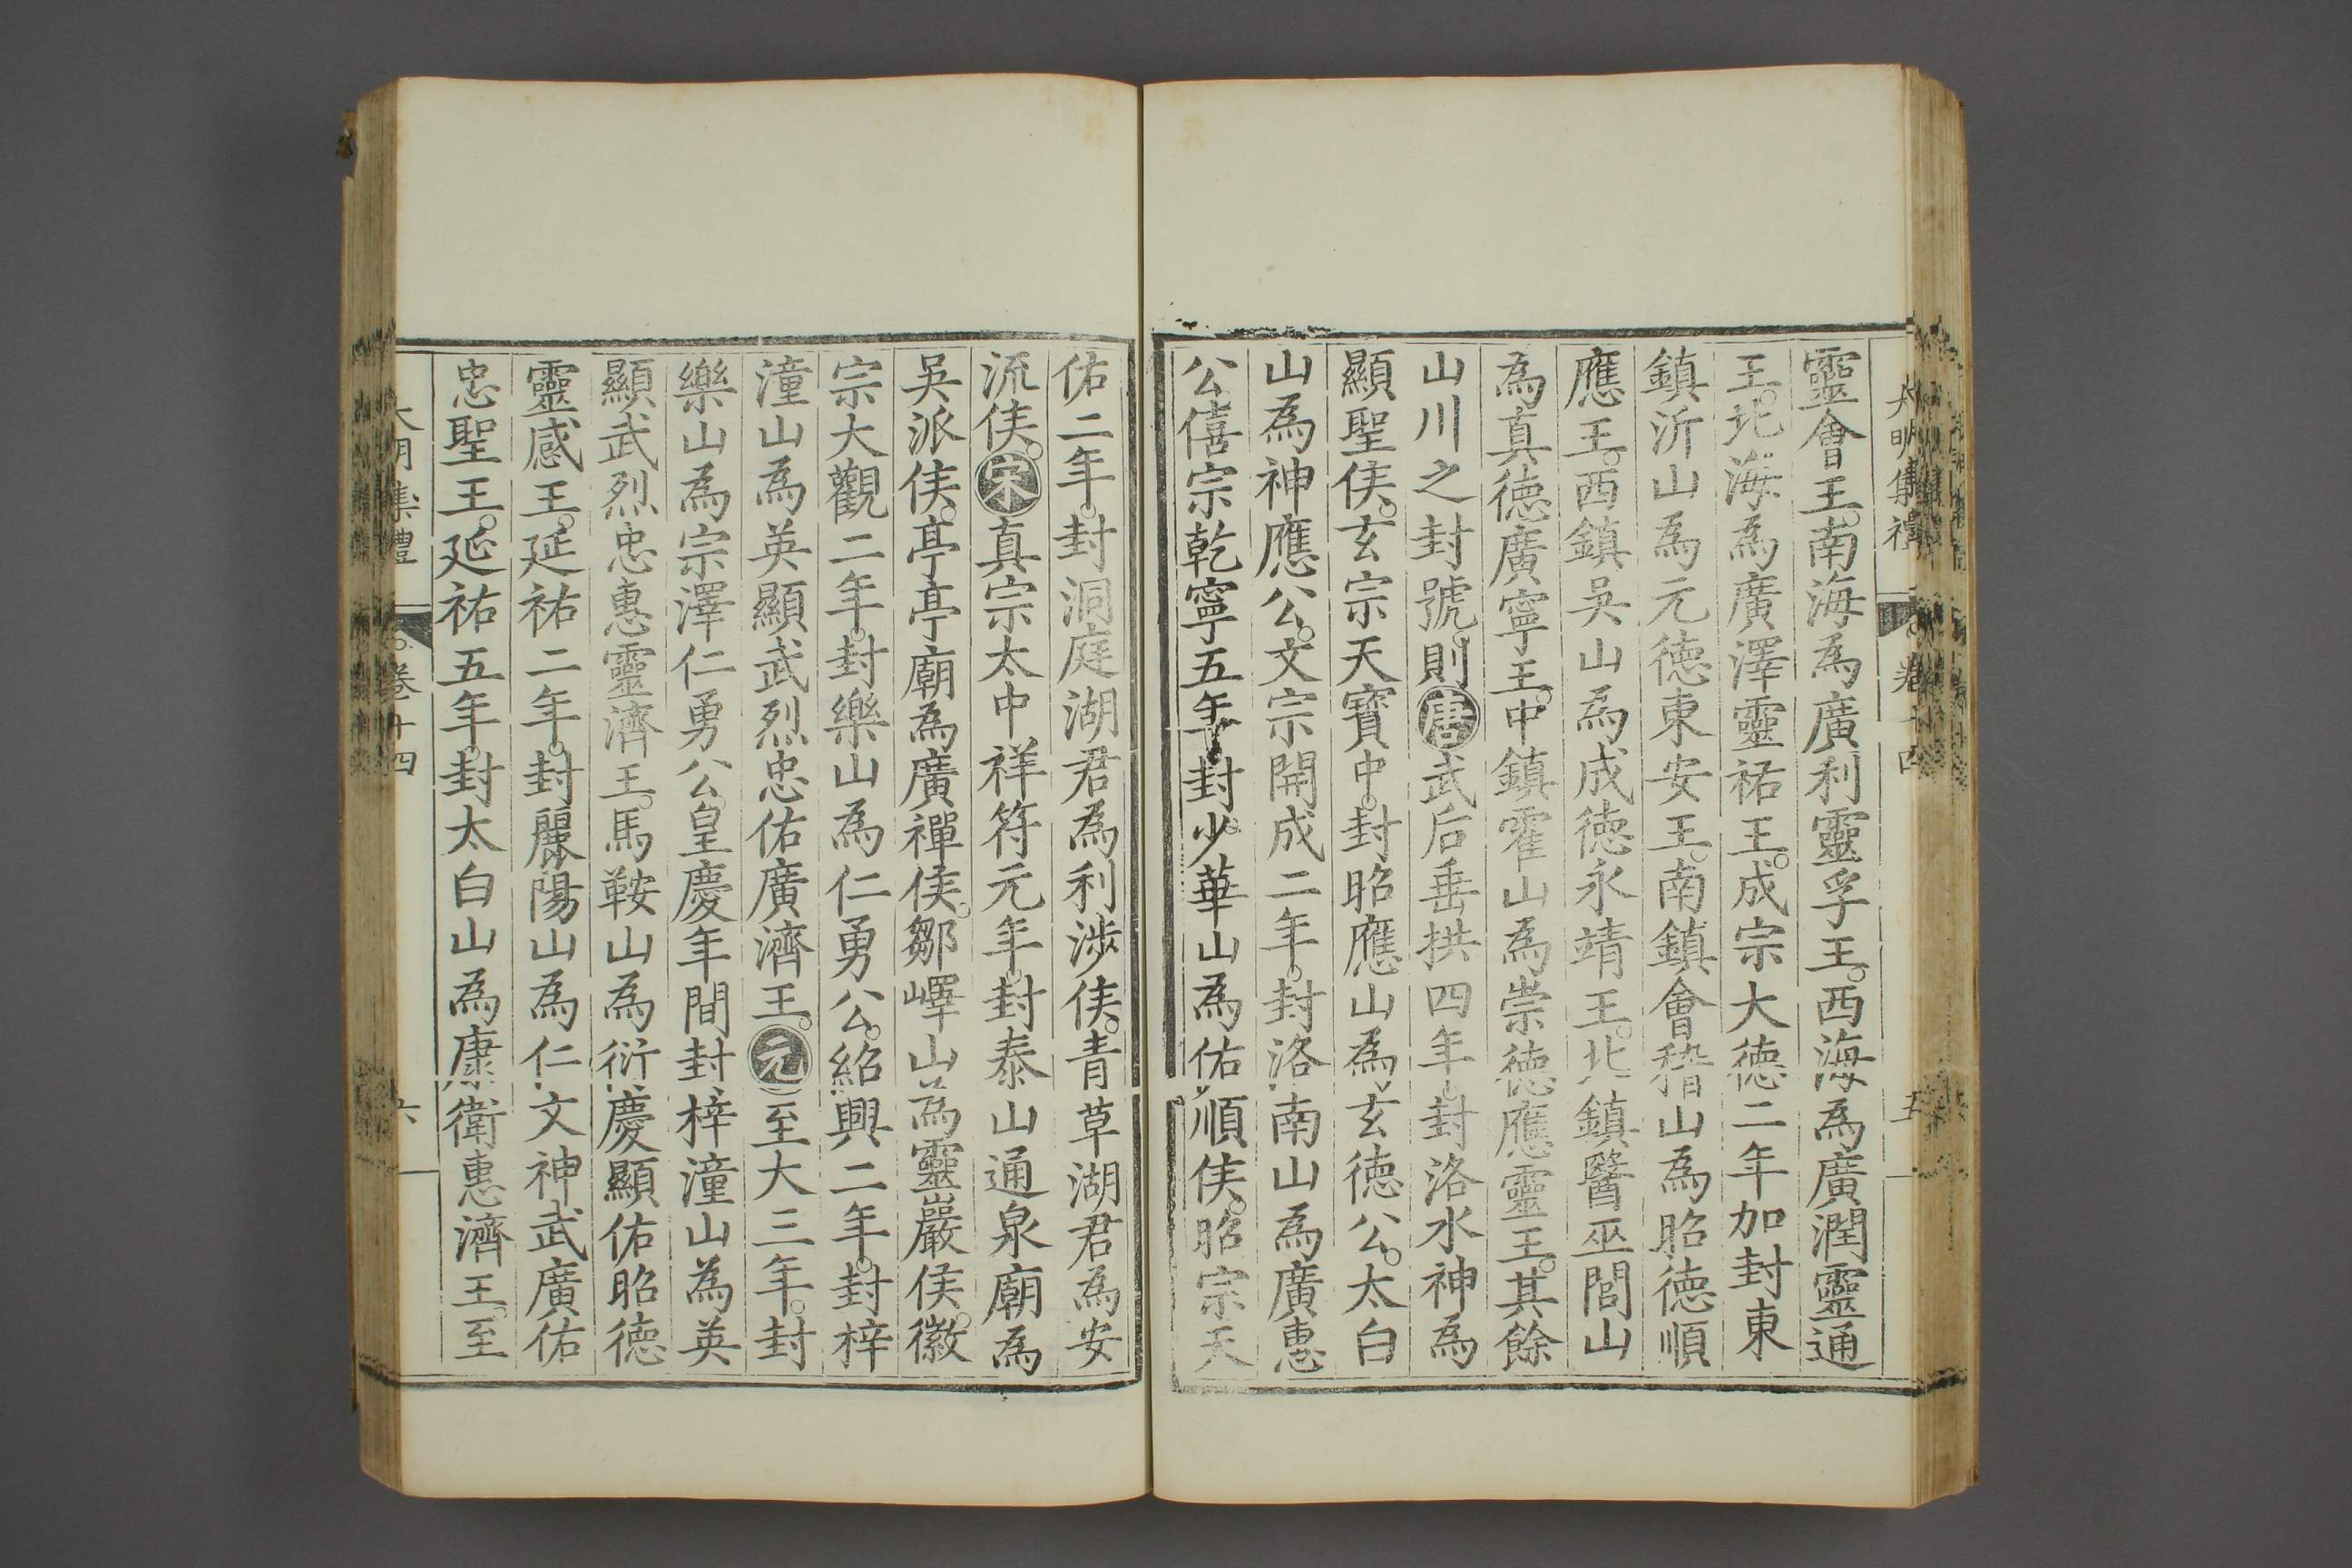 大明集禮 卷十四 五
靈會王。南海為廣利靈孚王。西海為廣潤靈通
王。北海為廣澤靈祐王。成宗大德二年加封東
鎮沂山為元德東安王。南鎮會稽山為昭德順
應王。西鎮吳山為成德永靖王。北鎮醫巫閭山
為真德廣寧王。中鎮霍山為崇德應靈王。其餘
山川之封號。則唐武后垂拱四年。封洛水神為
顯聖侯。玄宗天寶中。封昭應山為玄德公。太白
山為神應公。文宗開成二年。封洛南山為廣惠
公。僖宗乾寧五年封少華山為佑順侯。昭宗天
佑二年。封洞庭湖君為利涉侯。青草湖君為安
流侯。宋真宗太中祥符元年。封泰山通泉廟為
吳派侯。亭亭廟為廣禪侯。鄒嶧山為靈巖侯。徽
宗大觀二年。封樂山為仁勇公。紹興二年。封梓
潼山為英顯武烈忠佑廣濟王。元至大三年。封
樂山為宗澤仁勇公。皇慶年間封梓潼山為英
顯武烈忠惠靈濟王。馬鞍山為衍慶顯佑昭德
靈感王。延祐二年。封麗陽山為仁文神武廣佑
忠聖王。延祐五年。封太白山為康衛惠濟王。至
大明集禮 卷十四 六